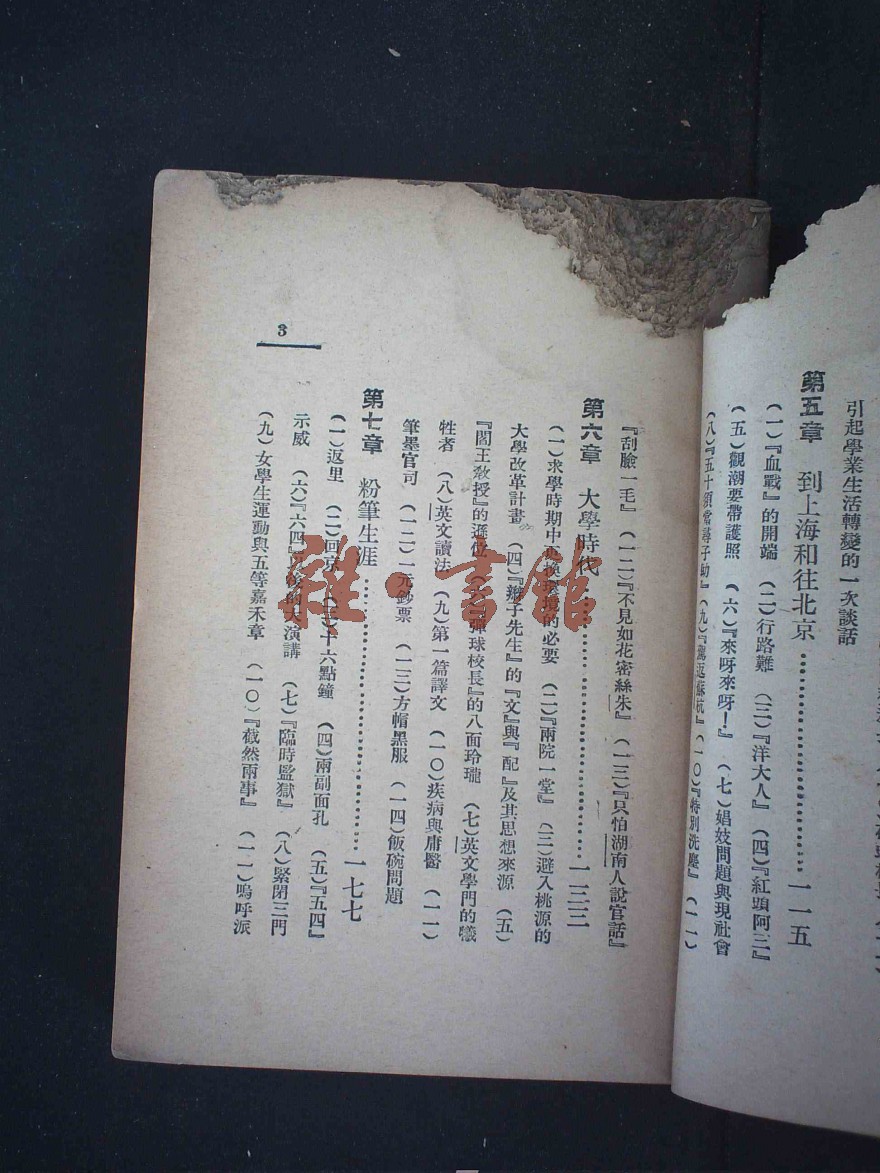 引起學業生活轉變的一次談話
第五章 到上海和往北京…………………一一五
(一)『血戰』的開端 (二)行路難 (三)『洋大人』 (四)『紅頭阿三』
(五)觀潮要帶護照 (六)『來呀來呀!』 (七)娼妓問題與現社會
(八)『五十領當尋子劫』 (九)『駕返蘇杭』 (一〇)『特別洗塵』 (一一)
『刮臉一毛』 (一二)『不見如花密絲朱』 (一三)『只怕湖南人說官話』
第六章 大學時代…………………一三三
(一)求學時期中更換環境的必要 (二)『兩院一堂』 (三)避入桃源的
大學改革計畫 (四)『辮子先生』的『文』與『配』及其思想來源 (五)
『閻王教授』的遜位 (六)『彈球校長』的八面玲瓏 (七)英文學門的犧
牲者 (八)英文讀法 (九)第一篇譯文 (一〇)疾病與庸醫 (一一)
筆墨官司 (一二)一元鈔票 (一三)方帽黑服 (一四)飯碗問題
第七章 粉筆生涯…………………一七七
(一)返里 (二)回京 (三)十六點鐘 (四)兩副面孔 (五)『五四』
示威 (六)『六四』以後的大演講 (七)『臨時監獄』 (八)緊閉三門
(九)女學生運動與五等嘉禾章 (一〇)『截然兩事』 (一一)嗚呼派
3
雜·書館